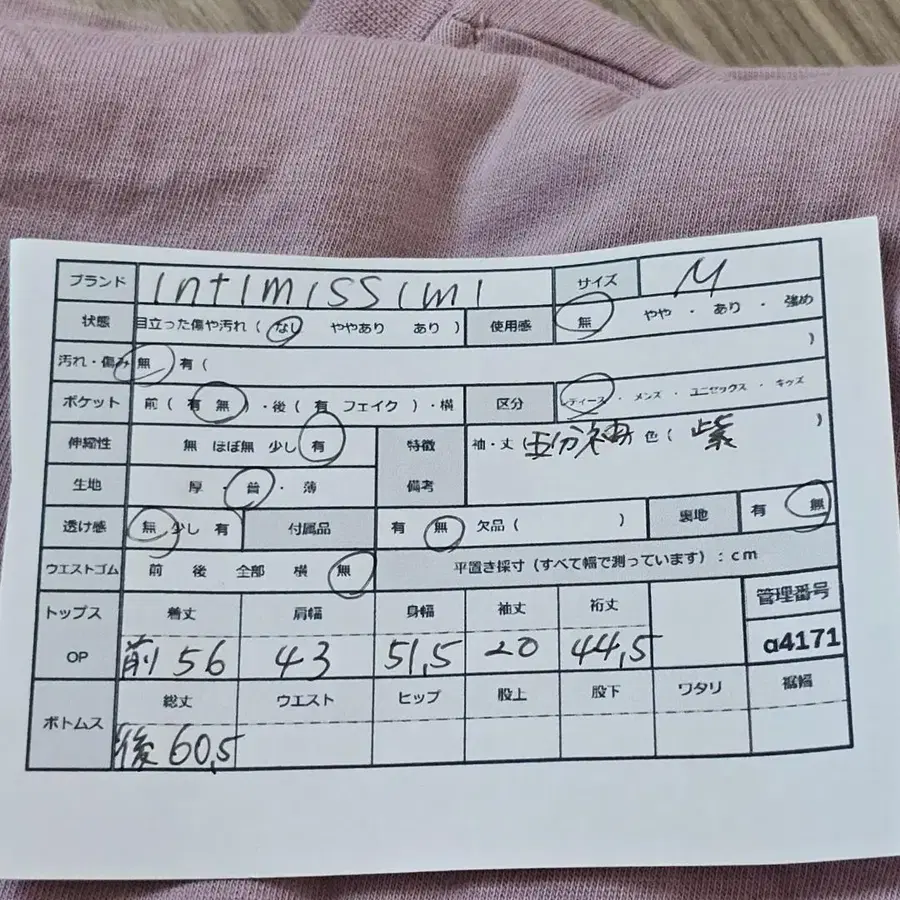 ブランド INTIMISSIMI サイズ M
状態 目立った傷や汚れ ( なし ややあり あり ) 使用感 無 やや ・ あり ・ 強め
汚れ・傷み 無 有 ( )
ポケット 前 ( 有 無 ) ・後 ( 有 フェイク ) ・横 区分 レディース ・ メンズ ・ ユニセックス ・ キッズ
伸縮性 無 ほぼ無 少し 有 特徴 袖・丈 五分袖 色 ( 紫 )
生地 厚 ・ 普 ・ 薄 備考
透け感 無 少し 有 付属品 有 無 欠品 ( ) 裏地 有 無
ウエストゴム 前 後 全部 横 無 平置き採寸 (すべて幅で測っています) : cm
トップス 着丈 肩幅 身幅 袖丈 裄丈 管理番号
OP 前 56 43 51,5 20 44,5 a4171
ボトムス 総丈 ウエスト ヒップ 股上 股下 ワタリ 裾幅
後 60,5